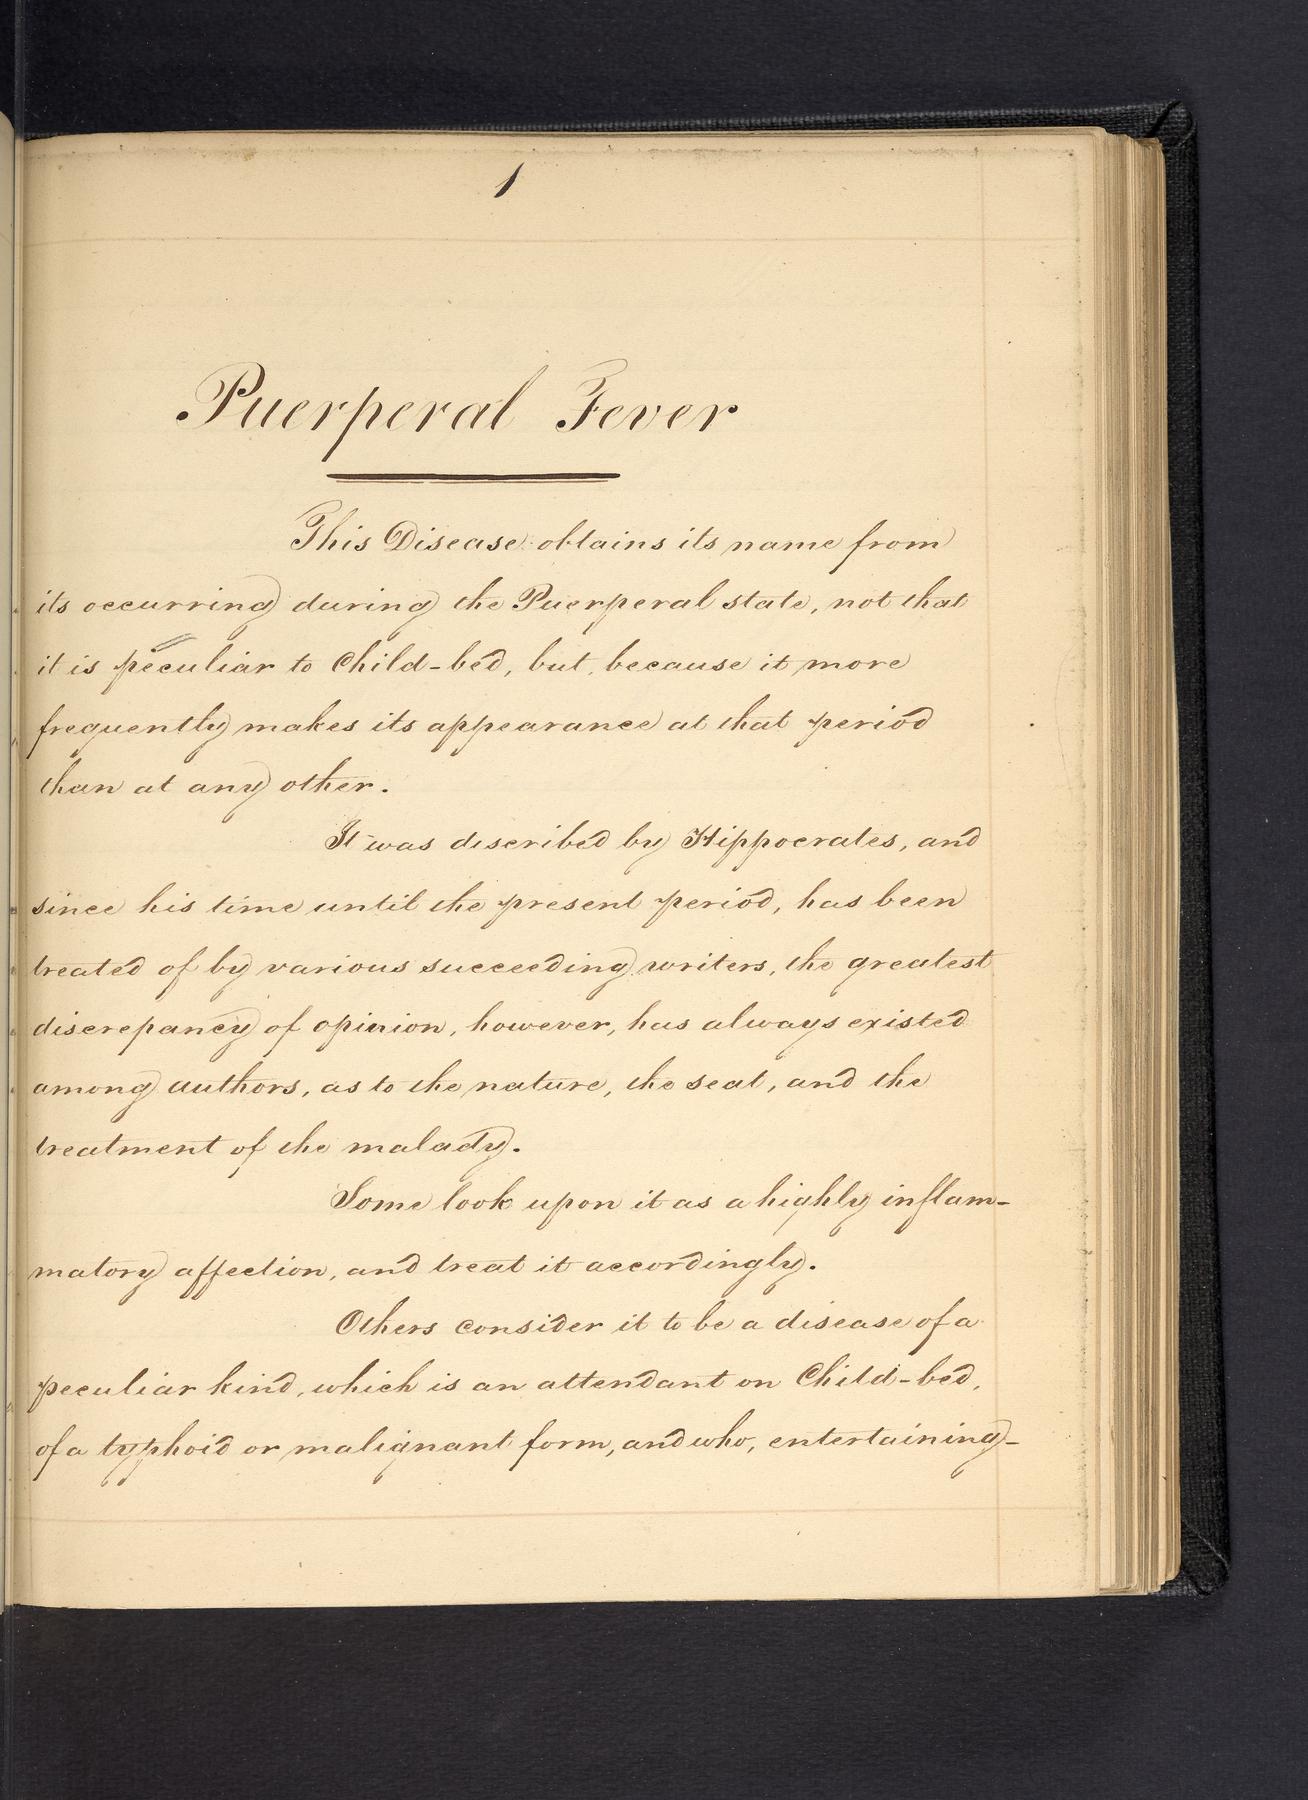 1
Puerperal Fever
This Disease obtains its name from
its occurring during the Puerperal state, not that
it is peculiar to Child-bed, but, because it more
frequently makes its appearance at that period
than at any other.
It was discribed by Hippocrates, and
since his time until the present period, has been
treated of by various succeeding writers, the greatest
discrepancy of opinion, however, has always existed
among authors, as to the nature, the seat, and the
treatment of the malady.
Some look upon it as a highly inflam-
matory affection, and treat it accordingly.
Others consider it to be a disease of a
peculiar kind, which is an attendant on Child-bed,
of a typhoid or malignant form, and who, entertaining-